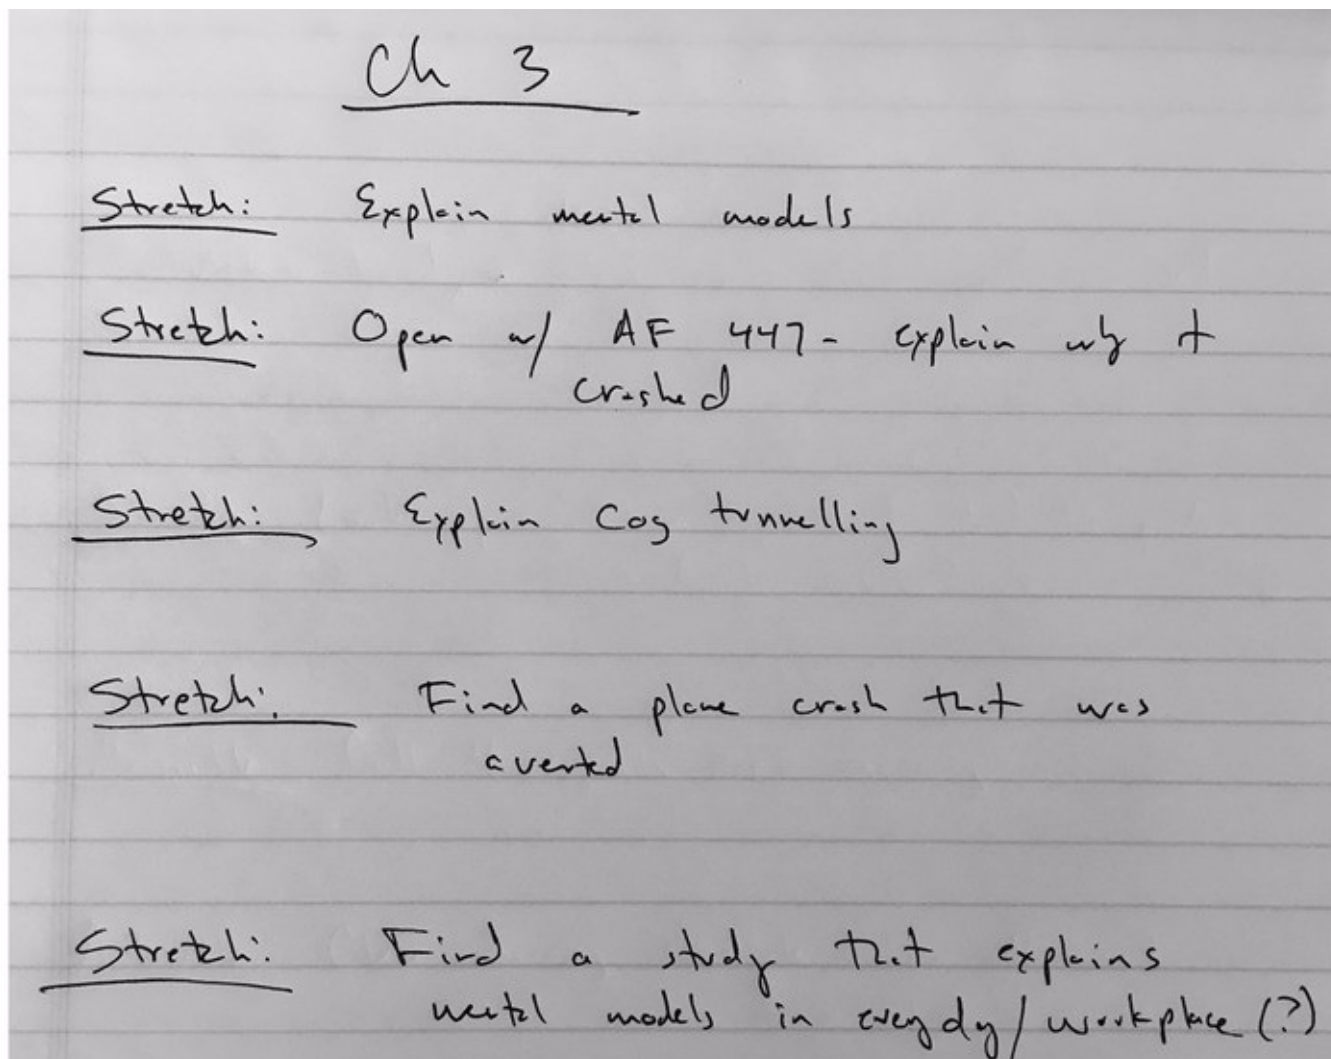 Ch 3
Stretch: Explain mental models
Stretch: Open w/ AF 447 - explain why it
crashed
Stretch: Explain Cog tunnelling
Stretch: Find a plane crash that was
averted
Stretch: Find a study that explains
mental models in everyday/workplace (?)